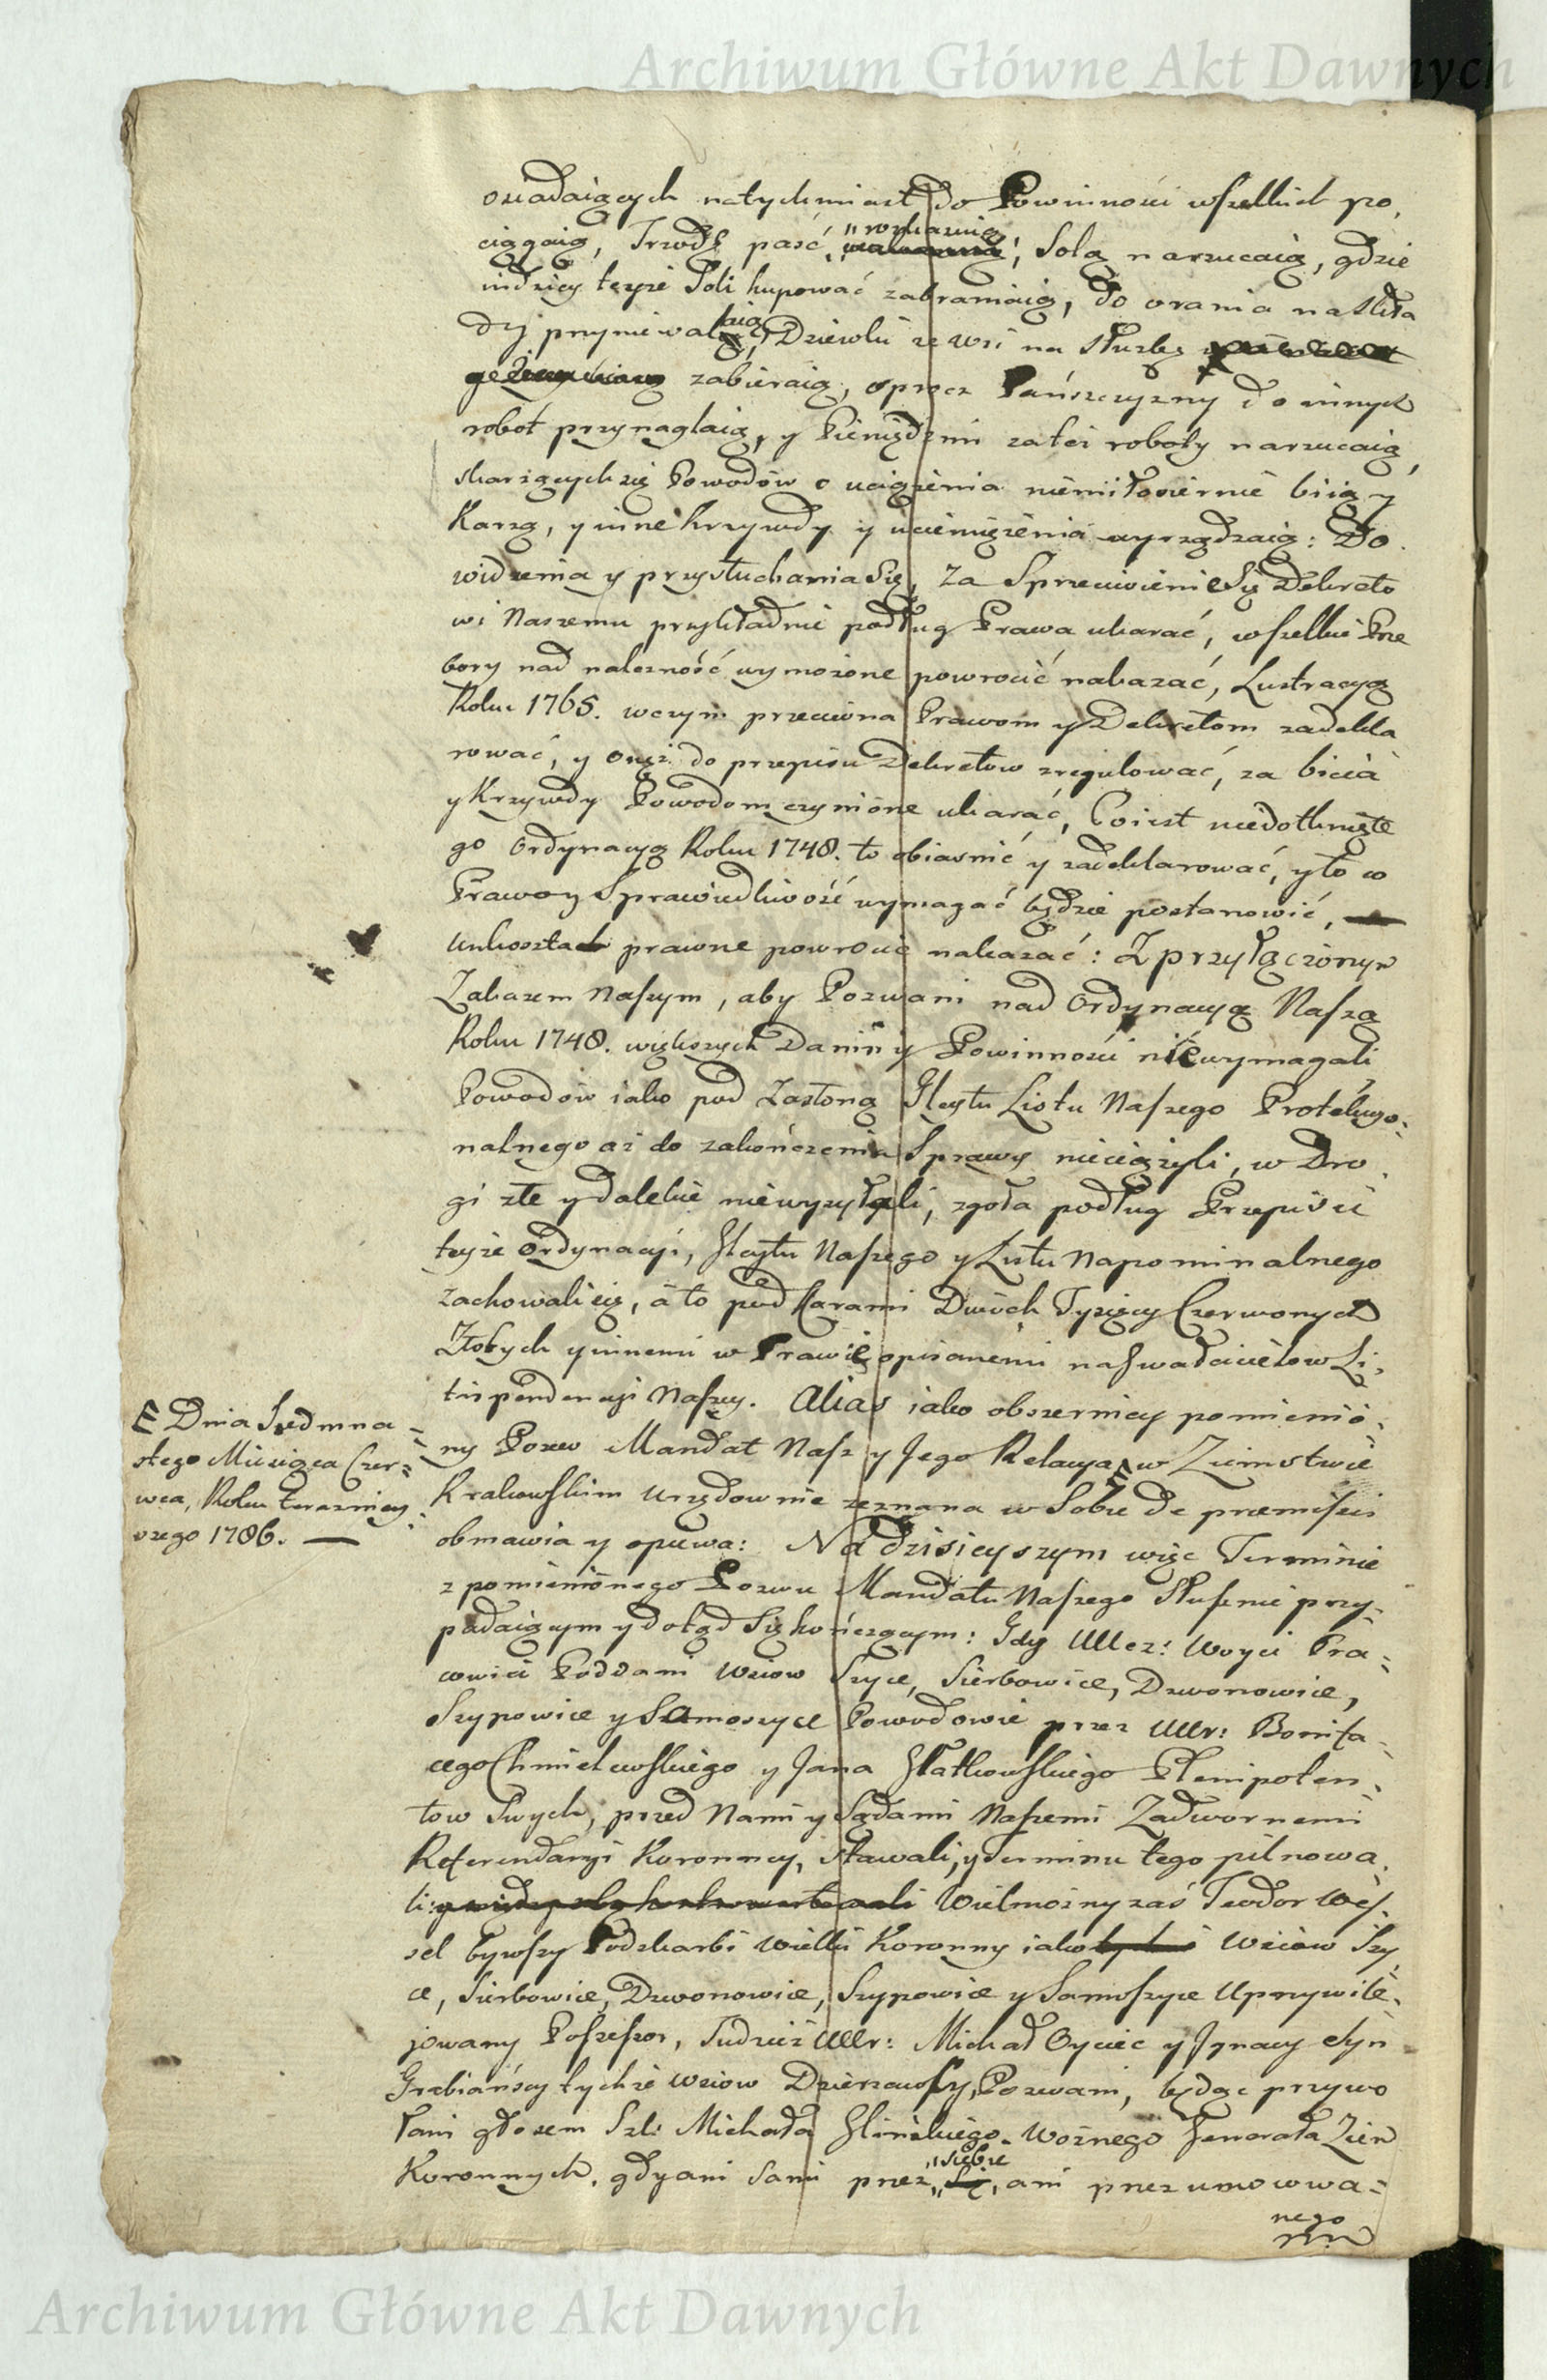 Archiwum Główne Akt Dawnych
osiadaiących natychmiast do Powinności wszelkich po,
ciągaią, Trzodę paść „rozkazuią, Solą narzucaią, gdzie
indziey teyże Soli kupować zabraniaią, do orania na skła
dy przyniewalaią, Dziewki ze wsi na służbę
zabieraią, oprocz Pańszczyzny do innych
robot przynaglaią, y Pieniędzmi za też roboty narzucaią,
skarżących się Powodów o uciążenia niemiłosiernie biią y
Karzą, y inne krzywdy y uciemiężenia wyrządzaią: Do
widzenia y przysłuchania Się, za Sprzeciwienie Się Dekreto
wi Naszemu przykładnie podług Prawa ukarać, wszelkie Prze
bory nad należność wymożone powrocić nakazać, Lustracyą
Roku 1765. w czym przeciwna Prawom y Dekretom zadekla
rować, y onęż do przepisu Dekretow zregulować, za bicia
y Krzywdy Powodom czynione ukarać, Co iest niedotknęte
go Ordynacyą Roku 1748. to obiasnić y zadeklarować, y to co
Prawo y Sprawiedliwość wymagać będzie postanowić,
unkoszta prawne powrocić nakazać: Z przyłączonym
Zakazem Naszym, aby Pozwani nad Ordynacyą Naszą
Roku 1748. większych Danin y Powinności niewymagali
Powodów iako pod Zasłoną Gleytu Listu Naszego Protekcyo-
nalnego aż do zakończenia Sprawy nieciążyli, w Dro
gi złe y dalekie niewysyłali, zgoła podług Przepisu
teyże Ordynacyi, Gleytu Naszego y Listu Napominalnego
zachowali się, a to pod Karami Dwóch Tysięcy Czerwonych
Złotych y innemi w Prawie opisanemi na gwałcicielow Li-
tispendencyi Naszey. Alias iako obszerniey pomienio-
ny Pozew Mandat Nasz y Jego Relacya w Ziemstwie
Krakowskim Urzędownie zeznana w Sobie de præmissis
obmawia y opiewa: Na dzisieyszym więc Terminie
z pomienionego Pozwu Mandatu Naszego Słusznie przy-
padaiącym y dotąd Się kończącym: Gdy UUcz: Woyci Pra-
cowici Poddani Wsiow Szyce, Sierbowice, Dzwonowice,
Szypowice y Samoszyce Powodowie przez UUr: Bonifa-
cego Chmielewskiego y Jana Głatkowskiego Plenipoten-
tow Swych, przed Nami y Sądami Naszemi Zadwornemi
Referendaryi Koronney, stawali, y Terminu tego pilnowa
li: Wielmożny zaś Teodor Wes-
sel bywszy Podskarbi Wielki Koronny iako Wsiow Szy,
ce, Sierbowice, Dzwonowice, Szypowice y Samoszyce Uprzywile-
jowany Possessor, Tudzież UUr: Michał Oyciec y Jgnacy Syn
Grabiańscy tychże Wsiow Dzierzawcy, Pozwani, będąc przywo
łani głosem Szl: Michała Glińskiego Woźnego Jenerała Ziem
Koronnych, gdy ani sami przez „siebie, ani przez umocowa-
nego
E Dnia Siedmna-
stego Miesiąca Czer-
wca, Roku teraznieÿ-
szego 1786. —
Archiwum Główne Akt Dawnych